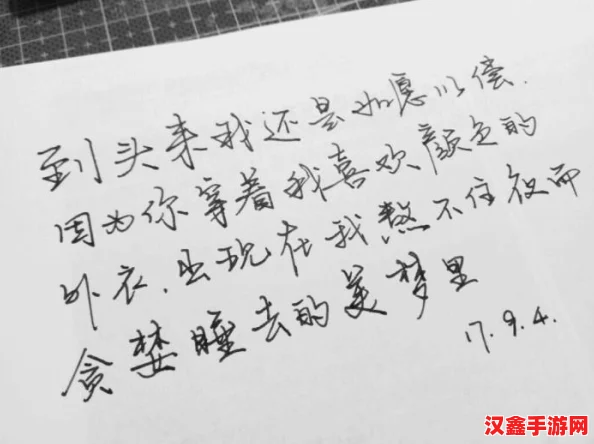 到头来我还是如愿以偿.
因为你穿着我喜欢颜色的
外衣.出现在我熬不住夜而
贪婪睡去的美梦里
17.9.4.
汉鑫手游网